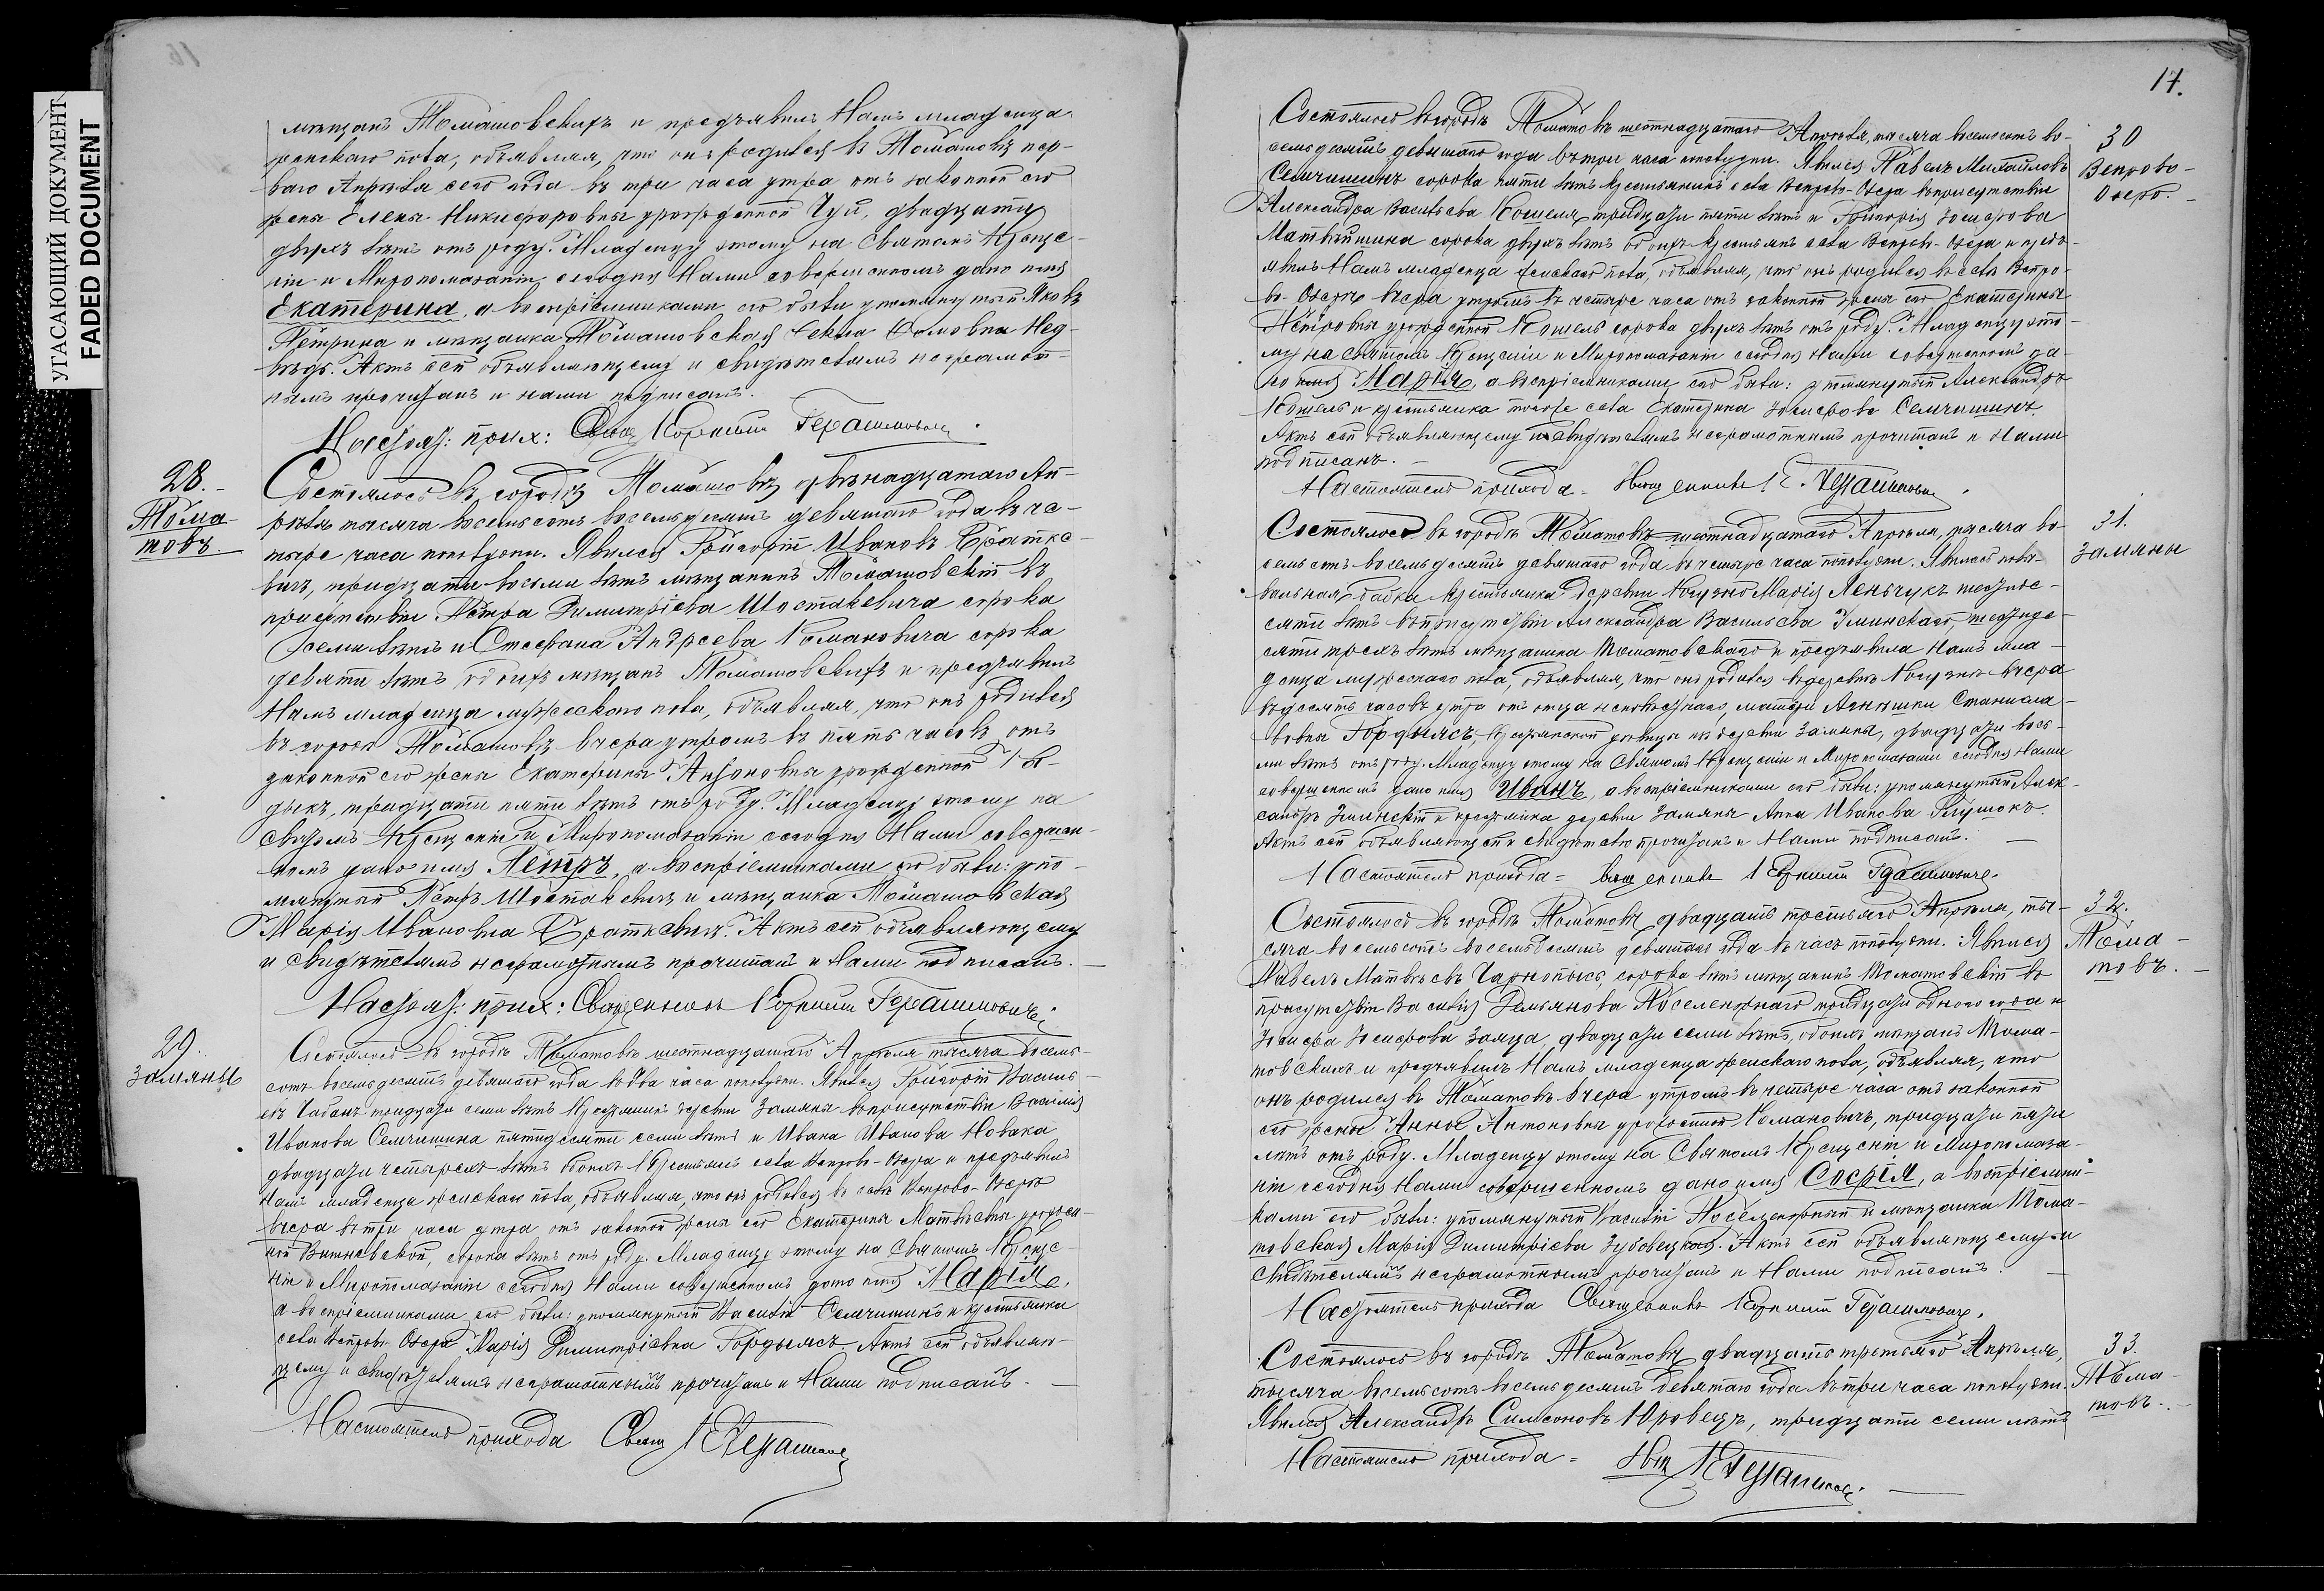 УГАСАЮЩИЙ ДОКУМЕНТ
FADED DOCUMENT
16
мѣщанъ Томашовскихъ и предъявилъ Намъ младенца
женскаго пола, объявляя, что онъ родился въ Томашовѣ пер-
ваго Апрѣля сего года въ три часа утра отъ законной его
жены Елены Никифоровны урожденной Чуй, двадцати
двухъ лѣтъ отъ роду. Младенцу этому на Святомъ Креще-
ніи и Миропомазаніи сегодня Нами совершенномъ дано имя
Екатерина, а воспріемниками его были упомянутый Яковъ
Петрина и мѣщанка Томашовская Фекла Мед-
вѣдь. Актъ сей объявляющему и свидѣтелямъ неграмот-
нымъ прочитанъ и нами подписанъ.
Настоят: прих: Священ Корнилій Герасимовичъ.
28.
Тома-
шовъ.
Состоялось въ городѣ Томашовѣ двѣнадцатаго Ап-
рѣля тысяча восемьсотъ восемьдесятъ девятаго года въ че-
тыре часа пополудни. Явился Григорій Ивановъ Братке-
вичъ, тридцати восьми лѣтъ мѣщанинъ Томашовскій въ
присутствіи Петра Димитріева Шостакевича сорока
семи лѣтъ и Стефана Андреева Романовича сорока
девяти лѣтъ обоихъ мѣщанъ Томашовскихъ и предъявилъ
Намъ младенца мужескаго пола, объявляя, что онъ родился
въ городѣ Томашовѣ вчера утромъ въ пять часовъ отъ
законной его жены Екатерины Антоновны урожденной
тридцати пяти лѣтъ отъ роду. Младенцу этому на
Святомъ Крещеніи и Миропомазаніи сегодня Нами совершен-
номъ дано имя Петръ, а воспріемниками его были: упо-
мянутый Петръ Шостакевичъ и мѣщанка Томашовская
Марія Ивановна Браткевичъ. Актъ сей объявляющему
и свидѣтелямъ неграмотнымъ прочитанъ и Нами подписанъ.
Настоят: прих: Священникъ Корнилій Герасимовичъ.
29.
Замяны
Состоялось въ городѣ Томашовѣ шестнадцатаго Апрѣля тысяча восемь-
сотъ восемьдесятъ девятаго года въ два часа пополудни. Явился Григорій Василь-
евъ Чабанъ тридцати семи лѣтъ Крестьянинъ деревни Замяны въ присутствіи Василія
Иванова Семчишина пятидесяти семи лѣтъ и Ивана Иванова Новака
двадцати четырехъ лѣтъ обоихъ Крестьянъ села Вепрово-Озера и предъявилъ
Намъ младенца женскаго пола, объявляя, что онъ родился въ селѣ Вепрово-Озерѣ
вчера въ три часа утра отъ законной жены его Екатерины Матвѣевны урожден-
ной Витневской, сорока лѣтъ отъ роду. Младенцу этому на Святомъ Креще-
ніи и Миропомазаніи сегодня Нами совершенномъ дано имя Марія,
а воспріемниками его были: упомянутый Василій Семчишинъ и крестьянка
села Вепрово-Озера Марія Димитріевна Гордыясъ. Актъ сей объявляю-
щему и свидѣтелямъ неграмотнымъ прочитанъ и Нами подписанъ.
Настоятель прихода Свящ К Герасимовичъ
17.
30
Вепрово-
Озеро.
Состоялось въ городѣ Томашовѣ шестнадцатаго Апрѣля, тысяча восемьсотъ во-
семьдесятъ девятаго года въ три часа пополудни. Явился Павелъ Михайловъ
Семчишинъ сорока пяти лѣтъ Крестьянинъ села Вепрово-Озера въ присутствіи
Александра Васильева Кошеля тридцати пяти лѣтъ и Григорія Іосифова
Матвѣйшина сорока двухъ лѣтъ обоихъ Крестьянъ села Вепрово-Озера и предъ-
явилъ Намъ младенца женскаго пола, объявляя, что онъ родился въ селѣ Вепро-
во-Озерѣ вчера утромъ въ четыре часа отъ законной жены его Екатерины
Петровны урожденной Кошель сорока двухъ лѣтъ отъ роду. Младенцу это-
му на Святомъ Крещеніи и Миропомазаніи сегодня Нами совершенномъ да-
но имя Марія, а воспріемниками его были: упомянутый Александръ
Кошель и крестьянка того же села Екатерина Іосифова Семчишинъ.
Актъ сей объявляющему и свидѣтелямъ неграмотнымъ прочитанъ и Нами
подписанъ.
Настоятель прихода = Священникъ К. Герасимовичъ.
31.
Замяны
Состоялось въ городѣ Томашовѣ шестнадцатаго Апрѣля, тысяча во-
семьсотъ восемьдесятъ девятаго года въ четыре часа пополудни. Явилась пови-
вальная бабка Крестьянка деревни Марія Леньчукъ шестьде-
сяти лѣтъ въ присутствіи Александра Васильева Зминскаго, шестьде-
сяти трехъ лѣтъ мѣщанина Томашовскаго и предъявила Намъ мла-
денца мужескаго пола, объявляя, что онъ родился въ деревнѣ вчера
въ десять часовъ утра отъ отца неизвѣстнаго, матери Агнешки Станисла-
вовны Гордыясъ, Крестьянской дѣвицы изъ деревни Замяны, двадцати вось-
ми лѣтъ отъ роду. Младенцу этому на Святомъ Крещеніи и Миропомазаніи сегодня Нами
совершенномъ дано имя Иванъ, а воспріемниками его были: упомянутый Алек-
сандръ Зминскій и крестьянка деревни Замяны Анна Иванова Глушокъ.
Актъ сей объявляющей и свидѣтелю прочитанъ и Нами подписанъ.
Настоятель прихода = Священникъ Корнилій Герасимовичъ.
32.
Тома-
шовъ.
Состоялось въ городѣ Томашовѣ двадцать третьяго Апрѣля, ты-
сяча восемьсотъ восемьдесятъ девятаго года въ часъ пополудни. Явился
Павелъ Матвѣевъ Чарнопысъ, сорока лѣтъ мѣщанинъ Томашовскій въ
присутствіи Василія Демьянова Поселенжнаго тридцати одного года и
Іосифа Іосифова Заяца, двадцати семи лѣтъ, обоихъ мѣщанъ Тома-
шовскихъ и предъявилъ Намъ младенца женскаго пола, объявляя, что
онъ родился въ Томашовѣ вчера утромъ въ четыре часа отъ законной
его жены Анны Антоновны урожденной Романовичъ, тридцати пяти
лѣтъ отъ роду. Младенцу этому на Святомъ Крещеніи и Миропомаза-
ніи сегодня Нами совершенномъ дано имя Софія, а воспріемни-
ками его были: упомянутый Василій Поселенжный и мѣщанка Тома-
шовская Марія Димитріева Зубовецкая. Актъ сей объявляющему и
свидѣтелямъ неграмотнымъ прочитанъ и Нами подписанъ.
Настоятель прихода Священникъ Корнилій Герасимовичъ.
33.
Тома-
шовъ.
Состоялось въ городѣ Томашовѣ двадцать третьяго Апрѣля,
тысяча восемьсотъ восемьдесятъ девятаго года въ три часа пополудни.
Явился Александръ Симеоновъ Юровецъ, тридцати семи лѣтъ
Настоятель прихода = Свящ К Герасимовичъ.